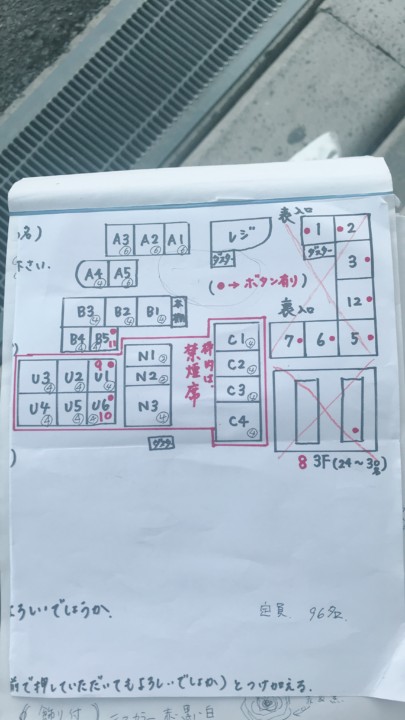 A3 A2 A1
⑥ ⑥ ⑥
レジ
表入口
1 2
ダスター
下さい.
A4 A5
④ ⑥
ダスター
3
(●→ボタン有り)
B3 B2 B1 本棚
④ ④ ④
12
B4 B5
④ ④ 11
裏入口
7 6 5
N1 ②
N2 ②
N3 ④
枠内は、禁煙席
C1 ④
C2 ④
C3 ④
C4 ④
9
U3 U2 U1
④ ④ ④
U4 U5 U6
④ ④ ②
10
8 3F(24〜30名)
よろしいでしょうか.
定員 96名.
前で押していただいてもよろしいでしょか)とつけ加える.
飾り付